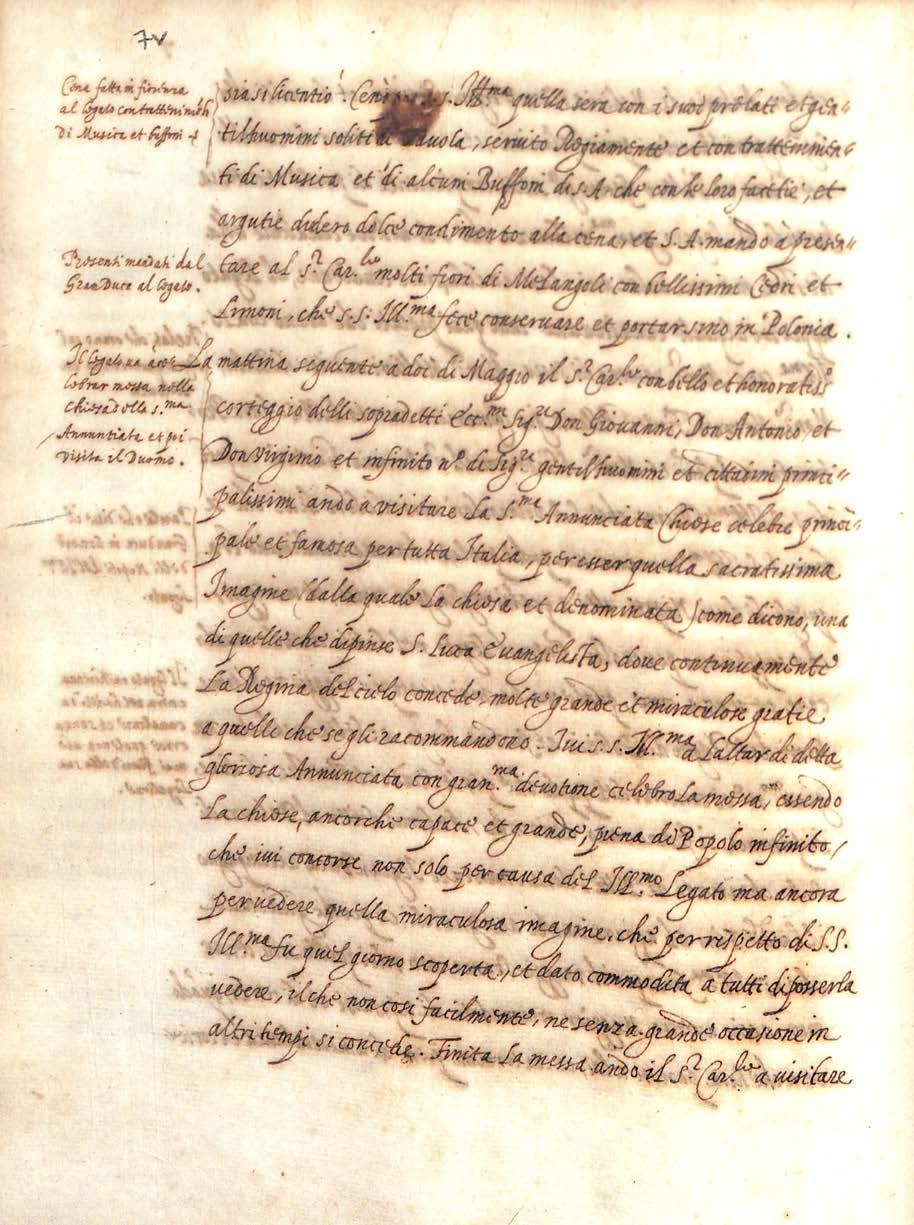 7v
Cena fatta in fiorenza
al legato con trattenimēti
di Musica et buffoni
siasi licentiò. Cenò Ill.ma quella sera con i suoi prelati et gen=
til'huomini soliti di tavola, servito Regiamente et con trattenimen=
ti di Musica et di alcuni Buffoni di S.A. che con le loro facetie, et
argutie diedero dolce condimento alla cena, et S.A. mandò à presen=
Presenti mandati dal
Gran Duca al legato.
tare al S.r Car.le molti fiori di Melangoli con bellissimi Cedri et
Limoni, che S.S. Ill.ma fece conservare et portar sino in Polonia.
Il legato va à ce=
lebrar messa nella
chiesa della S.ma
Annuntiata et poi
visita il Duomo.
La mattina seguente a doi di Maggio il S.r Car.le con bello et honoratiss.o
corteggio delli sopradetti Ecc.mi Sig.ri Don Giovanni, Don Antonio, et
Don Virginio et infinito n.o di Sig.ri gentil'huomini et cittadini princi=
palissimi andò a visitare la S.ma Annunciata Chiese celebre princi=
pale et famosa per tutta Italia, per esser quella sacratissima
Imagine (dalla quale la chiesa et denominata) come dicono, una
di quelle che dipinse S. Luca Evangelista, dove continuamente
La Regina del cielo concede, molte grande et miraculose gratie
a quelle che se gli racommandono. Ivi S.S. Ill.ma a l'altar di detta
gloriosa Annunciata con gran.ma devotione celebrò la messa, essendo
La chiese, ancorche capace et grande, piena de Popolo infinito,
che ivi concorse non solo per causa del Ill.mo Legato ma ancora
per vedere quella miraculosa imagine, che per rispetto di S.S.
Ill.ma fu quel giorno scoperta, et dato commodita a tutti di posserla
vedere, il che non cosi facilmente, ne senza grande occasione in
altri tempi si concede. Finita la messa andò il S.r Car.le a visitare